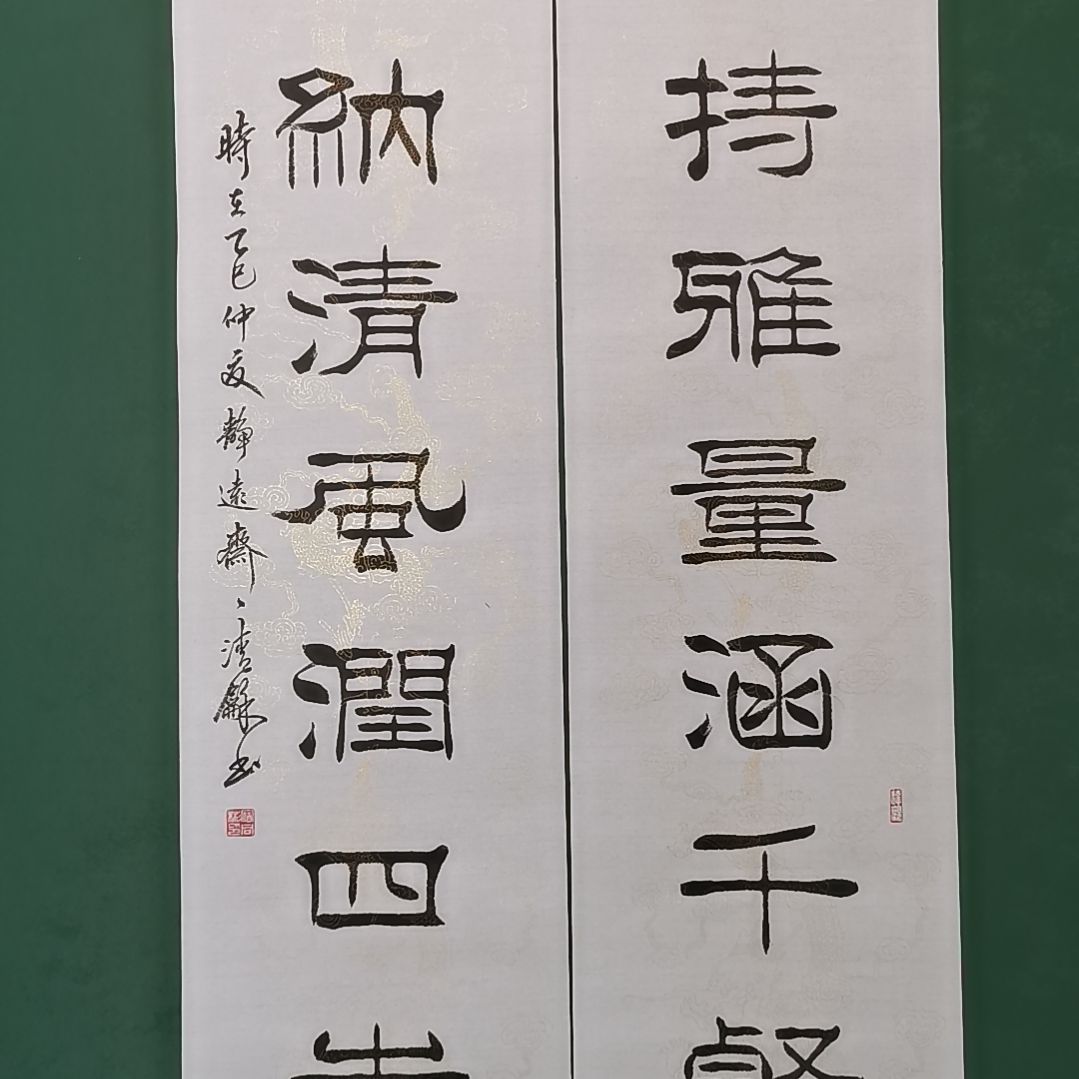 持雅量涵千
納清風潤四
時在乙巳仲夏靜遠齋清龢书